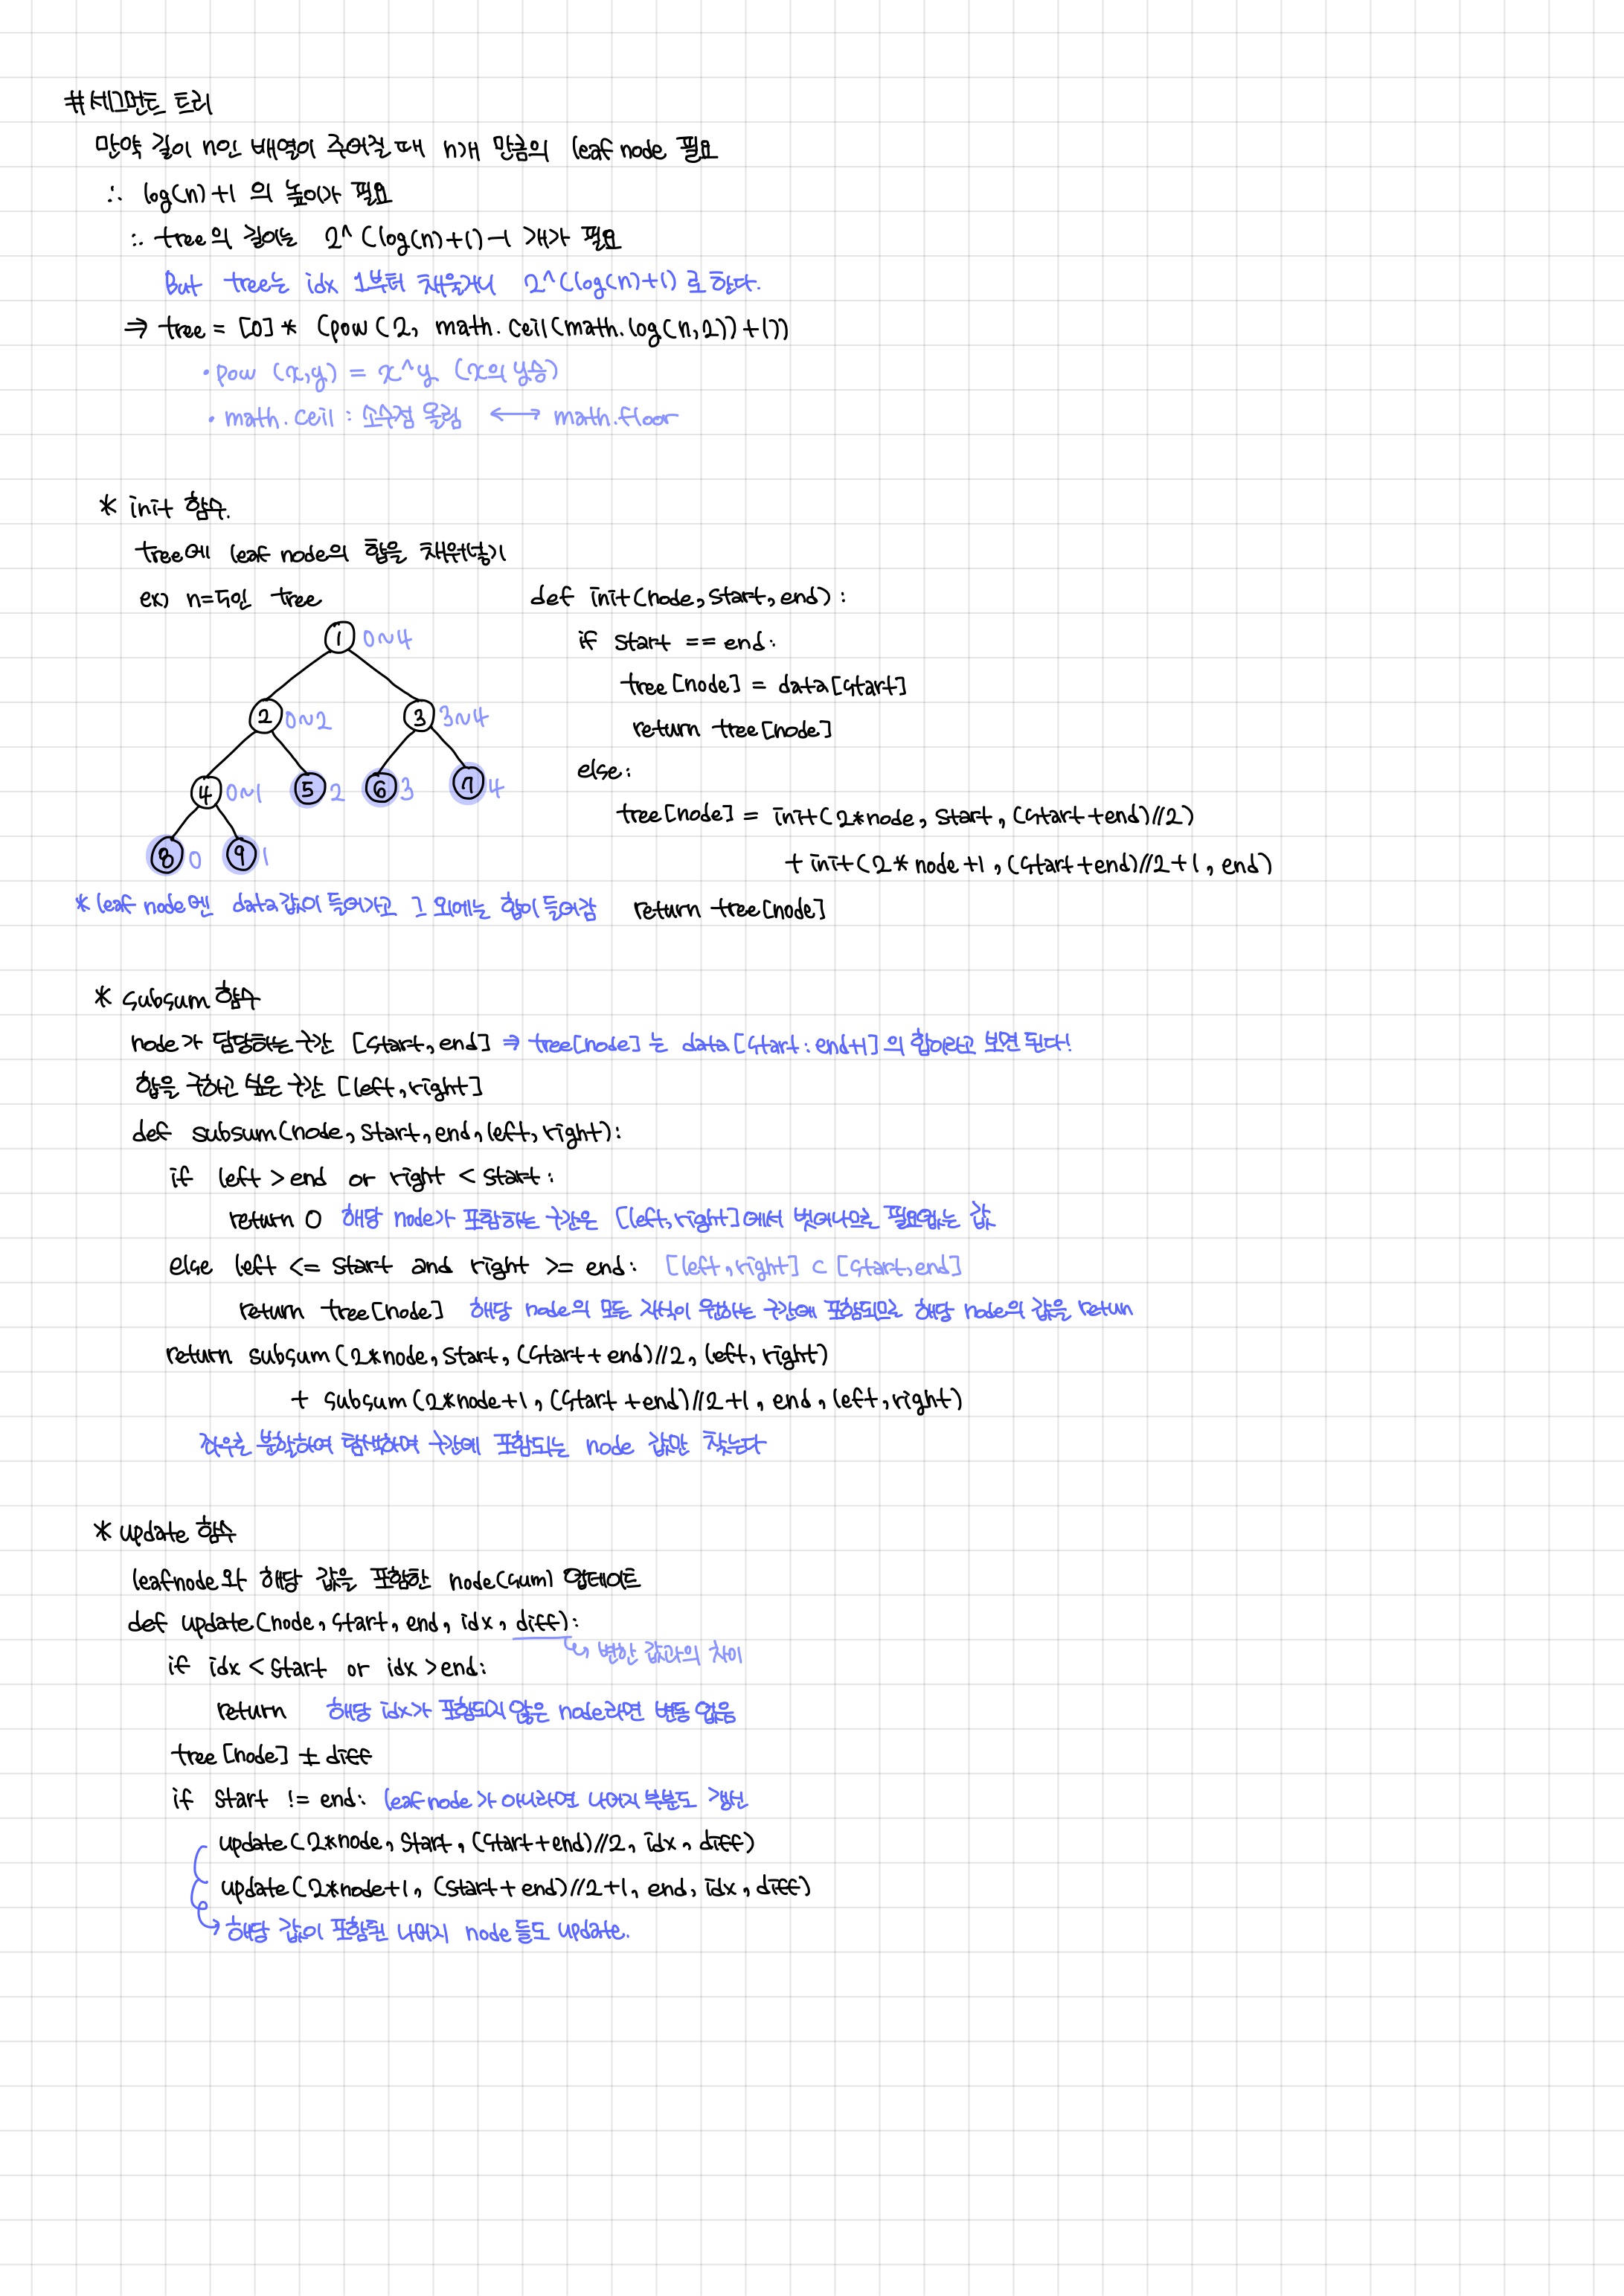 # 세그먼트 트리
만약 길이 n인 배열이 주어질 때 n개 만큼의 leaf node 필요
∴ log(n)+1 의 높이가 필요
∴ tree의 길이는 2^(log(n)+1)-1 개가 필요
But tree는 idx 1부터 채울거니 2^(log(n)+1) 로 한다.
⇒ tree = [0] * (pow(2, math.ceil(math.log(n,2))+1))
• pow (x,y) = x^y (x의 y승)
• math.ceil : 소수점 올림 ↔ math.floor
* init 함수.
tree에 leaf node의 합을 채워넣기
ex) n=5인 tree
1 0~4
2 0~2 3 3~4
4 0~1 5 2 6 3 7 4
8 0 9 1
* leaf node엔 data값이 들어가고 그 외에는 합이 들어감
def init(node, start, end):
if start == end:
tree[node] = data[start]
return tree[node]
else:
tree[node] = init(2*node, start, (start+end)//2)
+ init(2*node+1, (start+end)//2+1, end)
return tree[node]
* subsum 함수
node가 담당하는 구간 [start, end] ⇒ tree[node] 는 data[start: end+1] 의 합이라고 보면 된다!
합을 구하고 싶은 구간 [left, right]
def subsum(node, start, end, left, right):
if left > end or right < start:
return 0 해당 node가 포함하는 구간은 [left, right]에서 벗어나므로 필요없는 값
else left <= start and right >= end: [left, right] ⊂ [start, end]
return tree[node] 해당 node의 모든 자식이 원하는 구간에 포함되므로 해당 node의 값을 retun
return subsum(2*node, start, (start+end)//2, left, right)
+ subsum(2*node+1, (start+end)//2+1, end, left, right)
좌우로 분할하여 탐색하며 구간에 포함되는 node 값만 찾는다
* update 함수
leafnode와 해당 값을 포함한 node(sum) 업데이트
def update(node, start, end, idx, diff):
↳ 변한 값과의 차이
if idx < start or idx > end:
return 해당 idx가 포함되지 않은 node라면 변동 없음
tree[node] += diff
if start != end: leaf node가 아니라면 나머지 부분도 갱신
update(2*node, start, (start+end)//2, idx, diff)
update(2*node+1, (start+end)//2+1, end, idx, diff)
→ 해당 값이 포함된 나머지 node 들도 update.